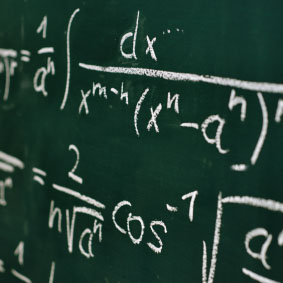 = 1/aⁿ ∫ dx / xᵐ⁻ⁿ (xⁿ - aⁿ)ʳ
= 2 / n√aⁿ cos⁻¹ √a